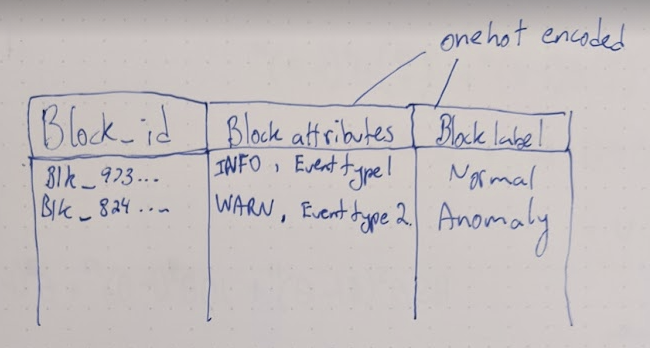 onehot encoded
Block_id Block attributes Block label
Blk_973... INFO, Event type 1 Normal
Blk_824.... WARN, Event type 2. Anomaly